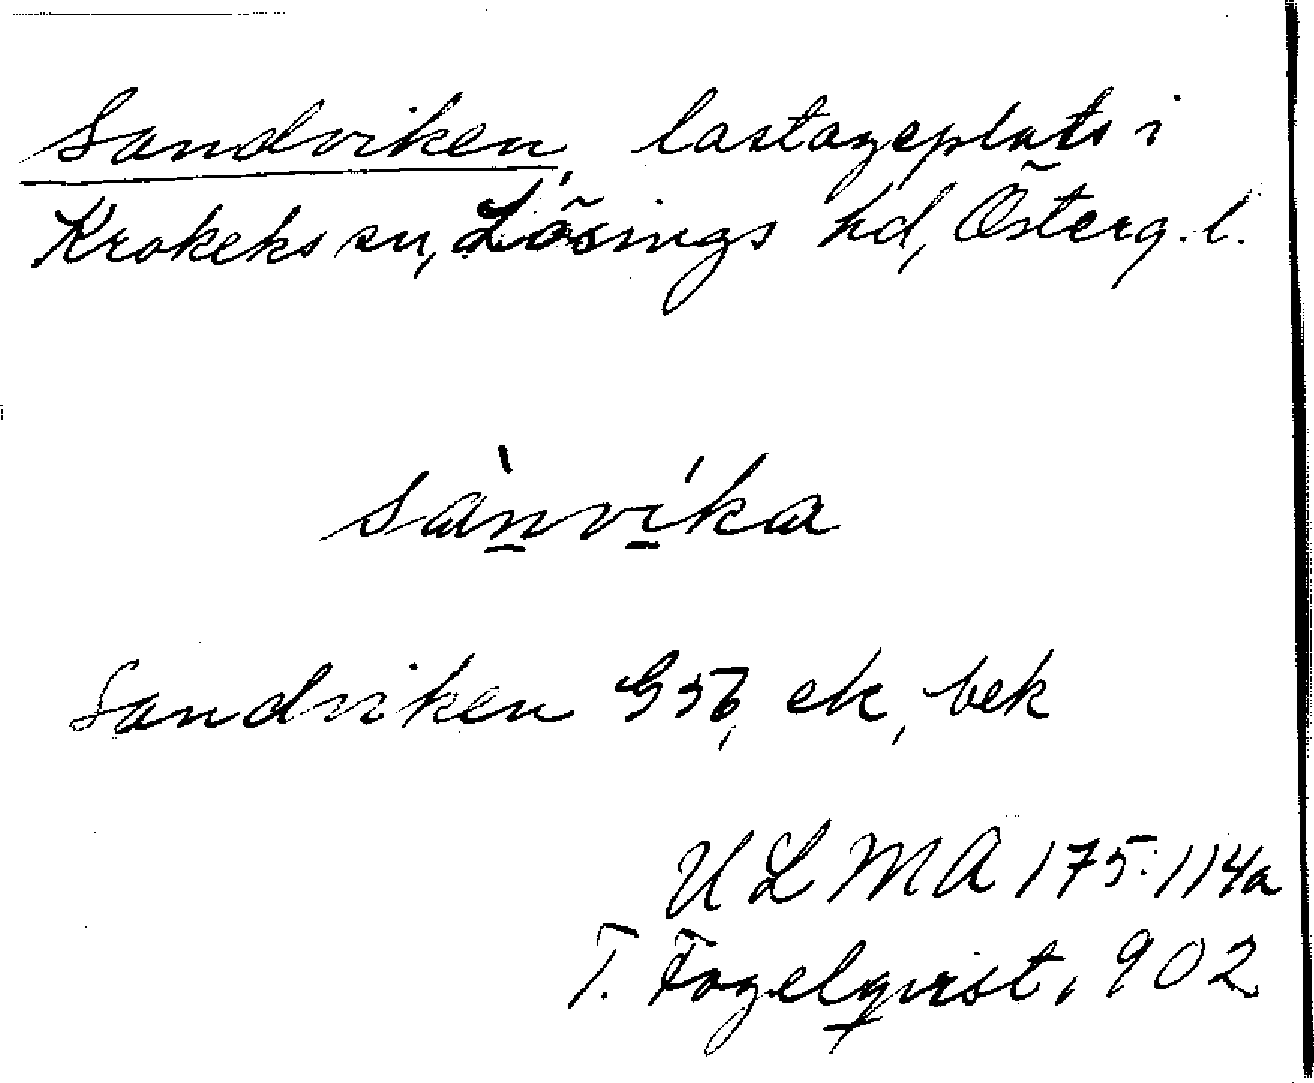 Sandviken, lastageplats i
Krokeks sn, Lösings hd, Österg. l.
sànvíka
Sandviken G 56, ek, bek
ULMA 175:114a
T. Fogelqvist, 902